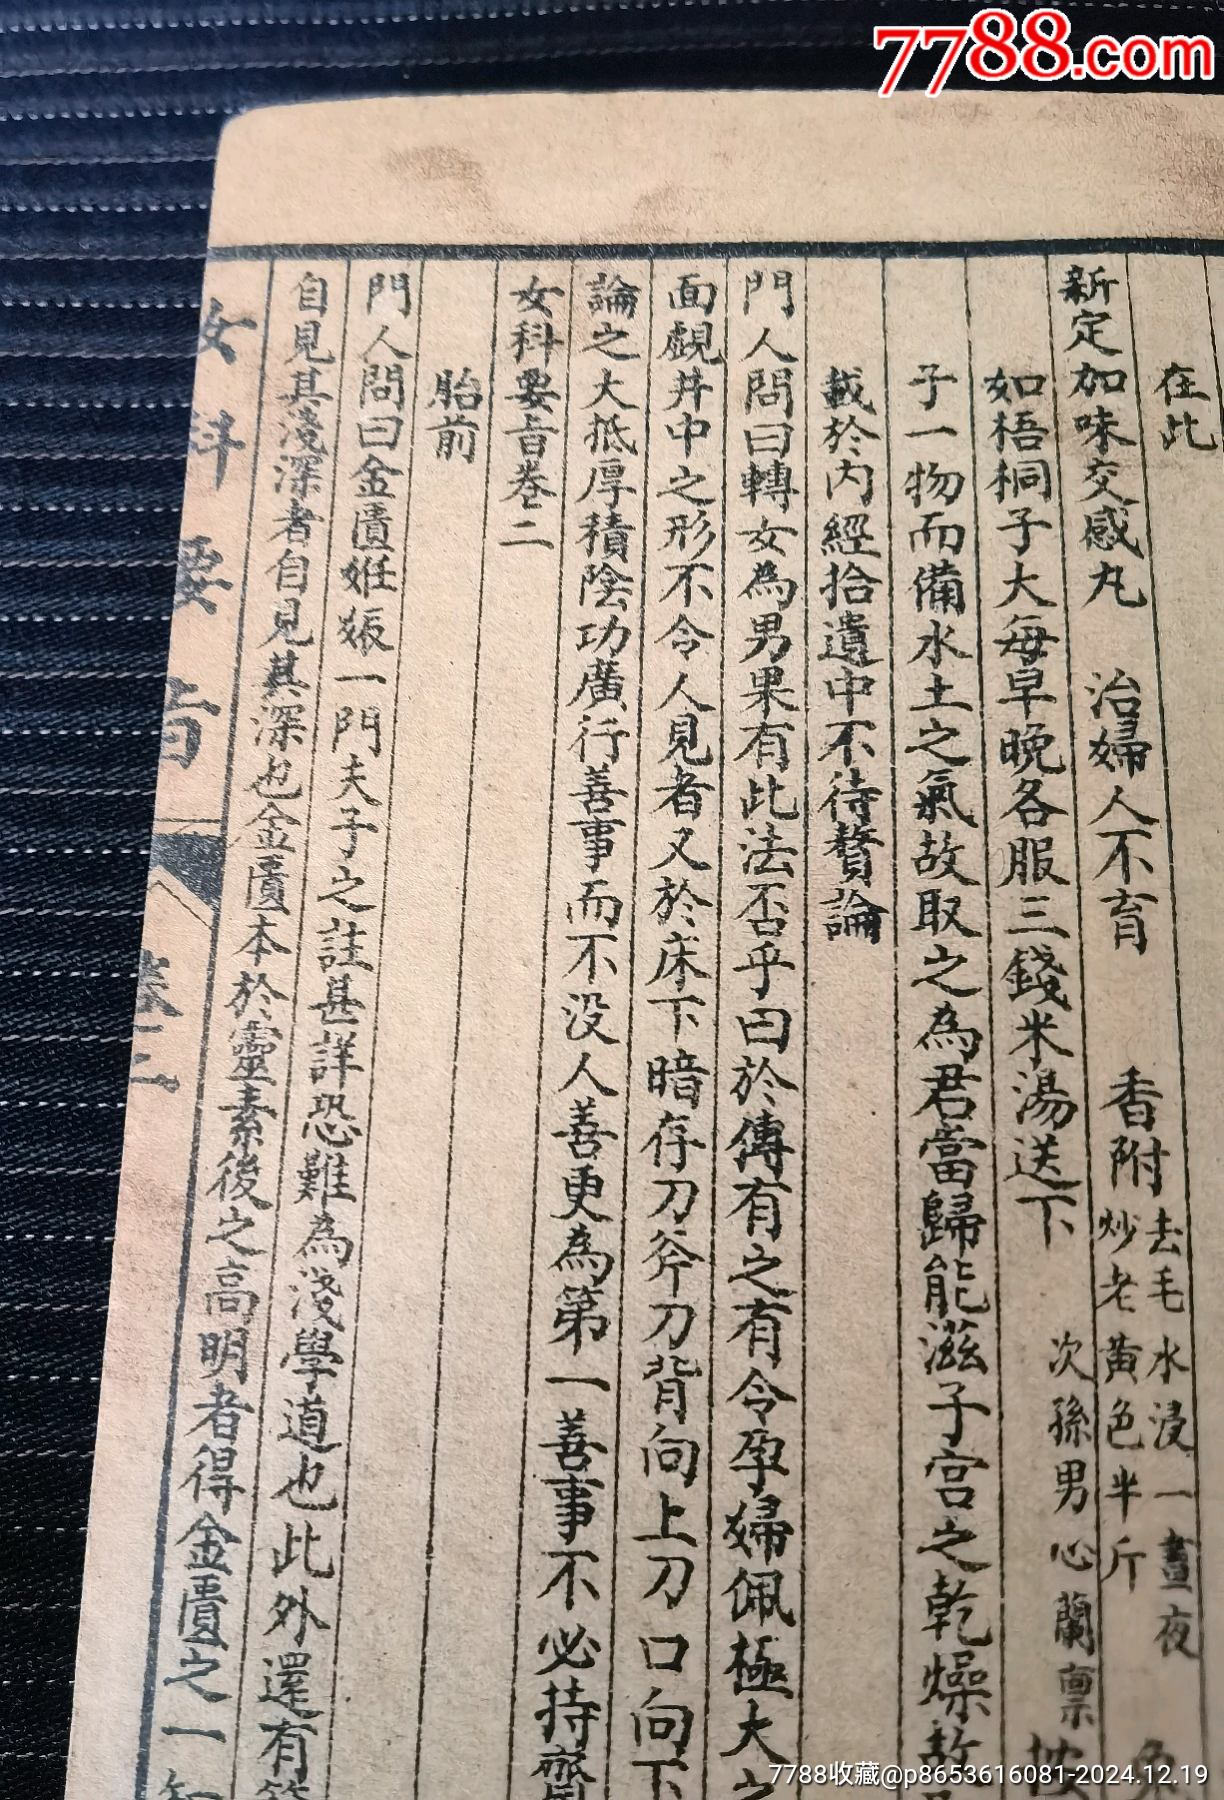 7788.com
在此
新定加味交感丸　治婦人不育　香附去毛水浸一晝夜炒老黃色半斤
如梧桐子大每早晚各服三錢米湯送下　次孫男心蘭稟按
子一物而備水土之氣故取之為君當歸能滋子宮之乾燥故
載於內經拾遺中不待贅論
門人問曰轉女為男果有此法否乎曰於傳有之有令孕婦佩極大之
面覷井中之形不令人見者又於床下暗存刀斧刀背向上刀口向下
論之大抵厚積陰功廣行善事而不没人善更為第一善事不必持齋
女科要旨卷二
胎前
門人問曰金匱姙娠一門夫子之註甚詳恐難為淺學道也此外還有
自見其淺深者自見其深也金匱本於靈素後之高明者得金匱之一
女科要旨　卷二
7788收藏@p8653616081-2024.12.19